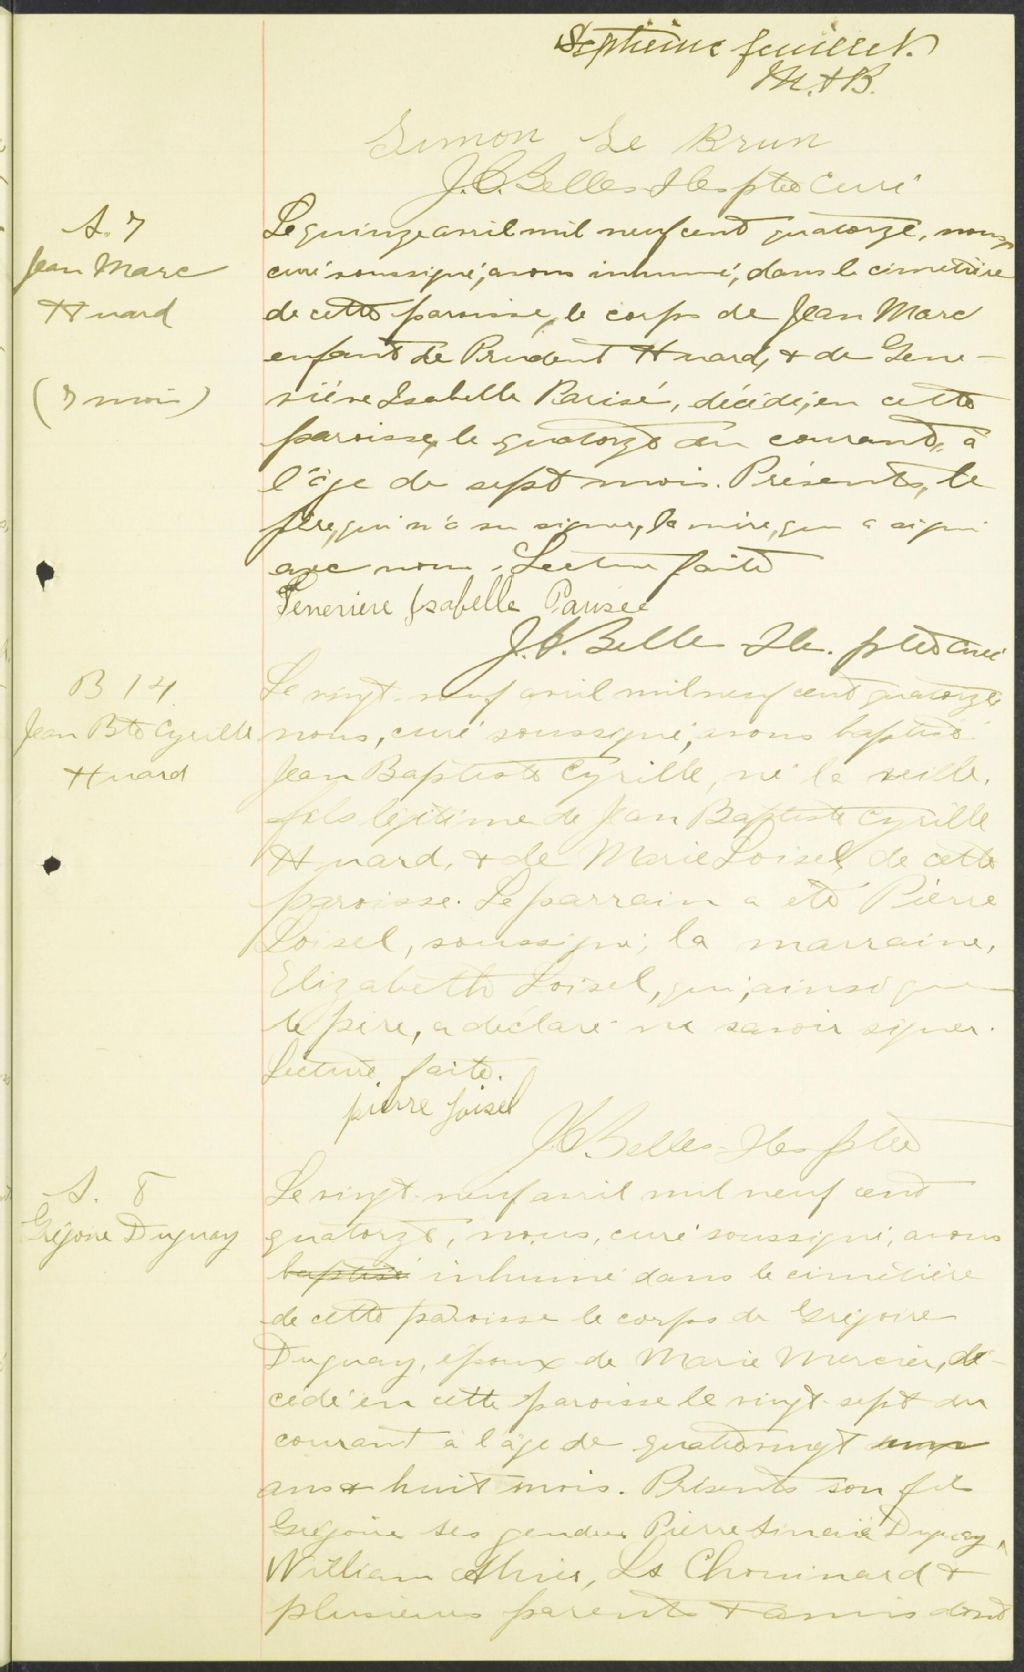 Septième feuillet.
M. & B.
Simon Le Brun
J.C. Belles-Iles ptre Curé
S. 7
Jean Marc
Huard
(7 mois)
Le quinze avril mil neuf cent quatorze, nous,
curé soussigné, avons inhumé, dans le cimetière
de cette paroisse, le corps de Jean Marc
enfant de Prudent Huard, & de Gene-
viève Isabelle Parisé, décédé, en cette
paroisse, le quatorze du courant, à
l'âge de sept mois. Présents, le
père, qui n'a su signer, la mère, qui a signé
avec nous. Lecture faite
Genevieve Isabelle Parisée
J.C. Belles Iles. ptre Curé
B 14
Jean Bte Cyrille
Huard
Le vingt-neuf avril mil neuf cent quatorze
nous, curé soussigné, avons baptisé
Jean Baptiste Cyrille, né la veille,
fils légitime de Jean Baptiste Cyrille
Huard, & de Marie Loisel, de cette
paroisse. Le parrain a été Pierre
Loisel, soussigné; la marraine,
Elizabeth Loisel, qui, ainsi que
le père, a déclaré ne savoir signer.
Lecture faite.
pierre Loisel
J.C. Belles-Iles ptre
S. 8
Grégoire Duguay
Le vingt-neuf avril mil neuf cent
quatorze, nous, curé soussigné, avons
baptisé inhumé dans le cimetière
de cette paroisse le corps de Grégoire
Duguay, époux de Marie Mercier, dé-
cédé en cette paroisse le vingt-sept du
courant à l'âge de quatrevingt
ans & huit mois. Présents son fils
Grégoire ses gendres Pierre Duguay,
William, Ls Chouinard &
plusieurs parents & amis dont